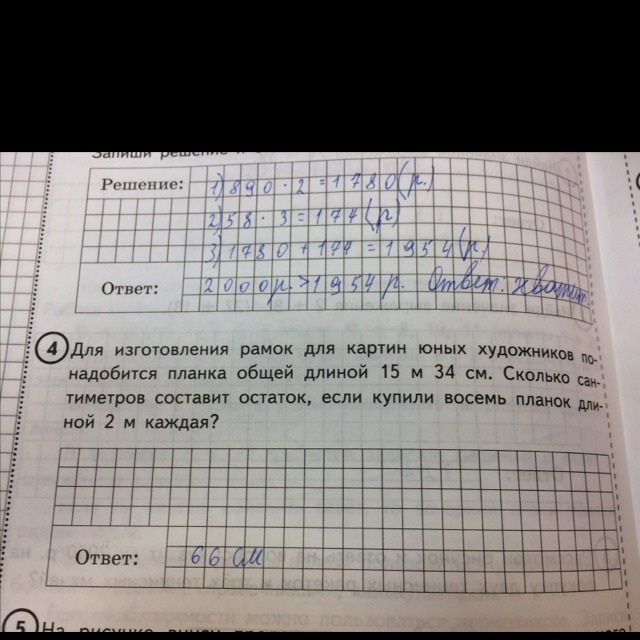 Запиши решение и
Решение: 1) 890 · 2 = 1780 (р.)
2) 58 · 3 = 174 (р)
3) 1780 + 174 = 1954 (р.)
Ответ: 2000р. > 1954 р. Ответ: хватит
4 Для изготовления рамок для картин юных художников по-
надобится планка общей длиной 15 м 34 см. Сколько сан-
тиметров составит остаток, если купили восемь планок дли-
ной 2 м каждая?
Ответ: 66 см
5 На рисунке внизу